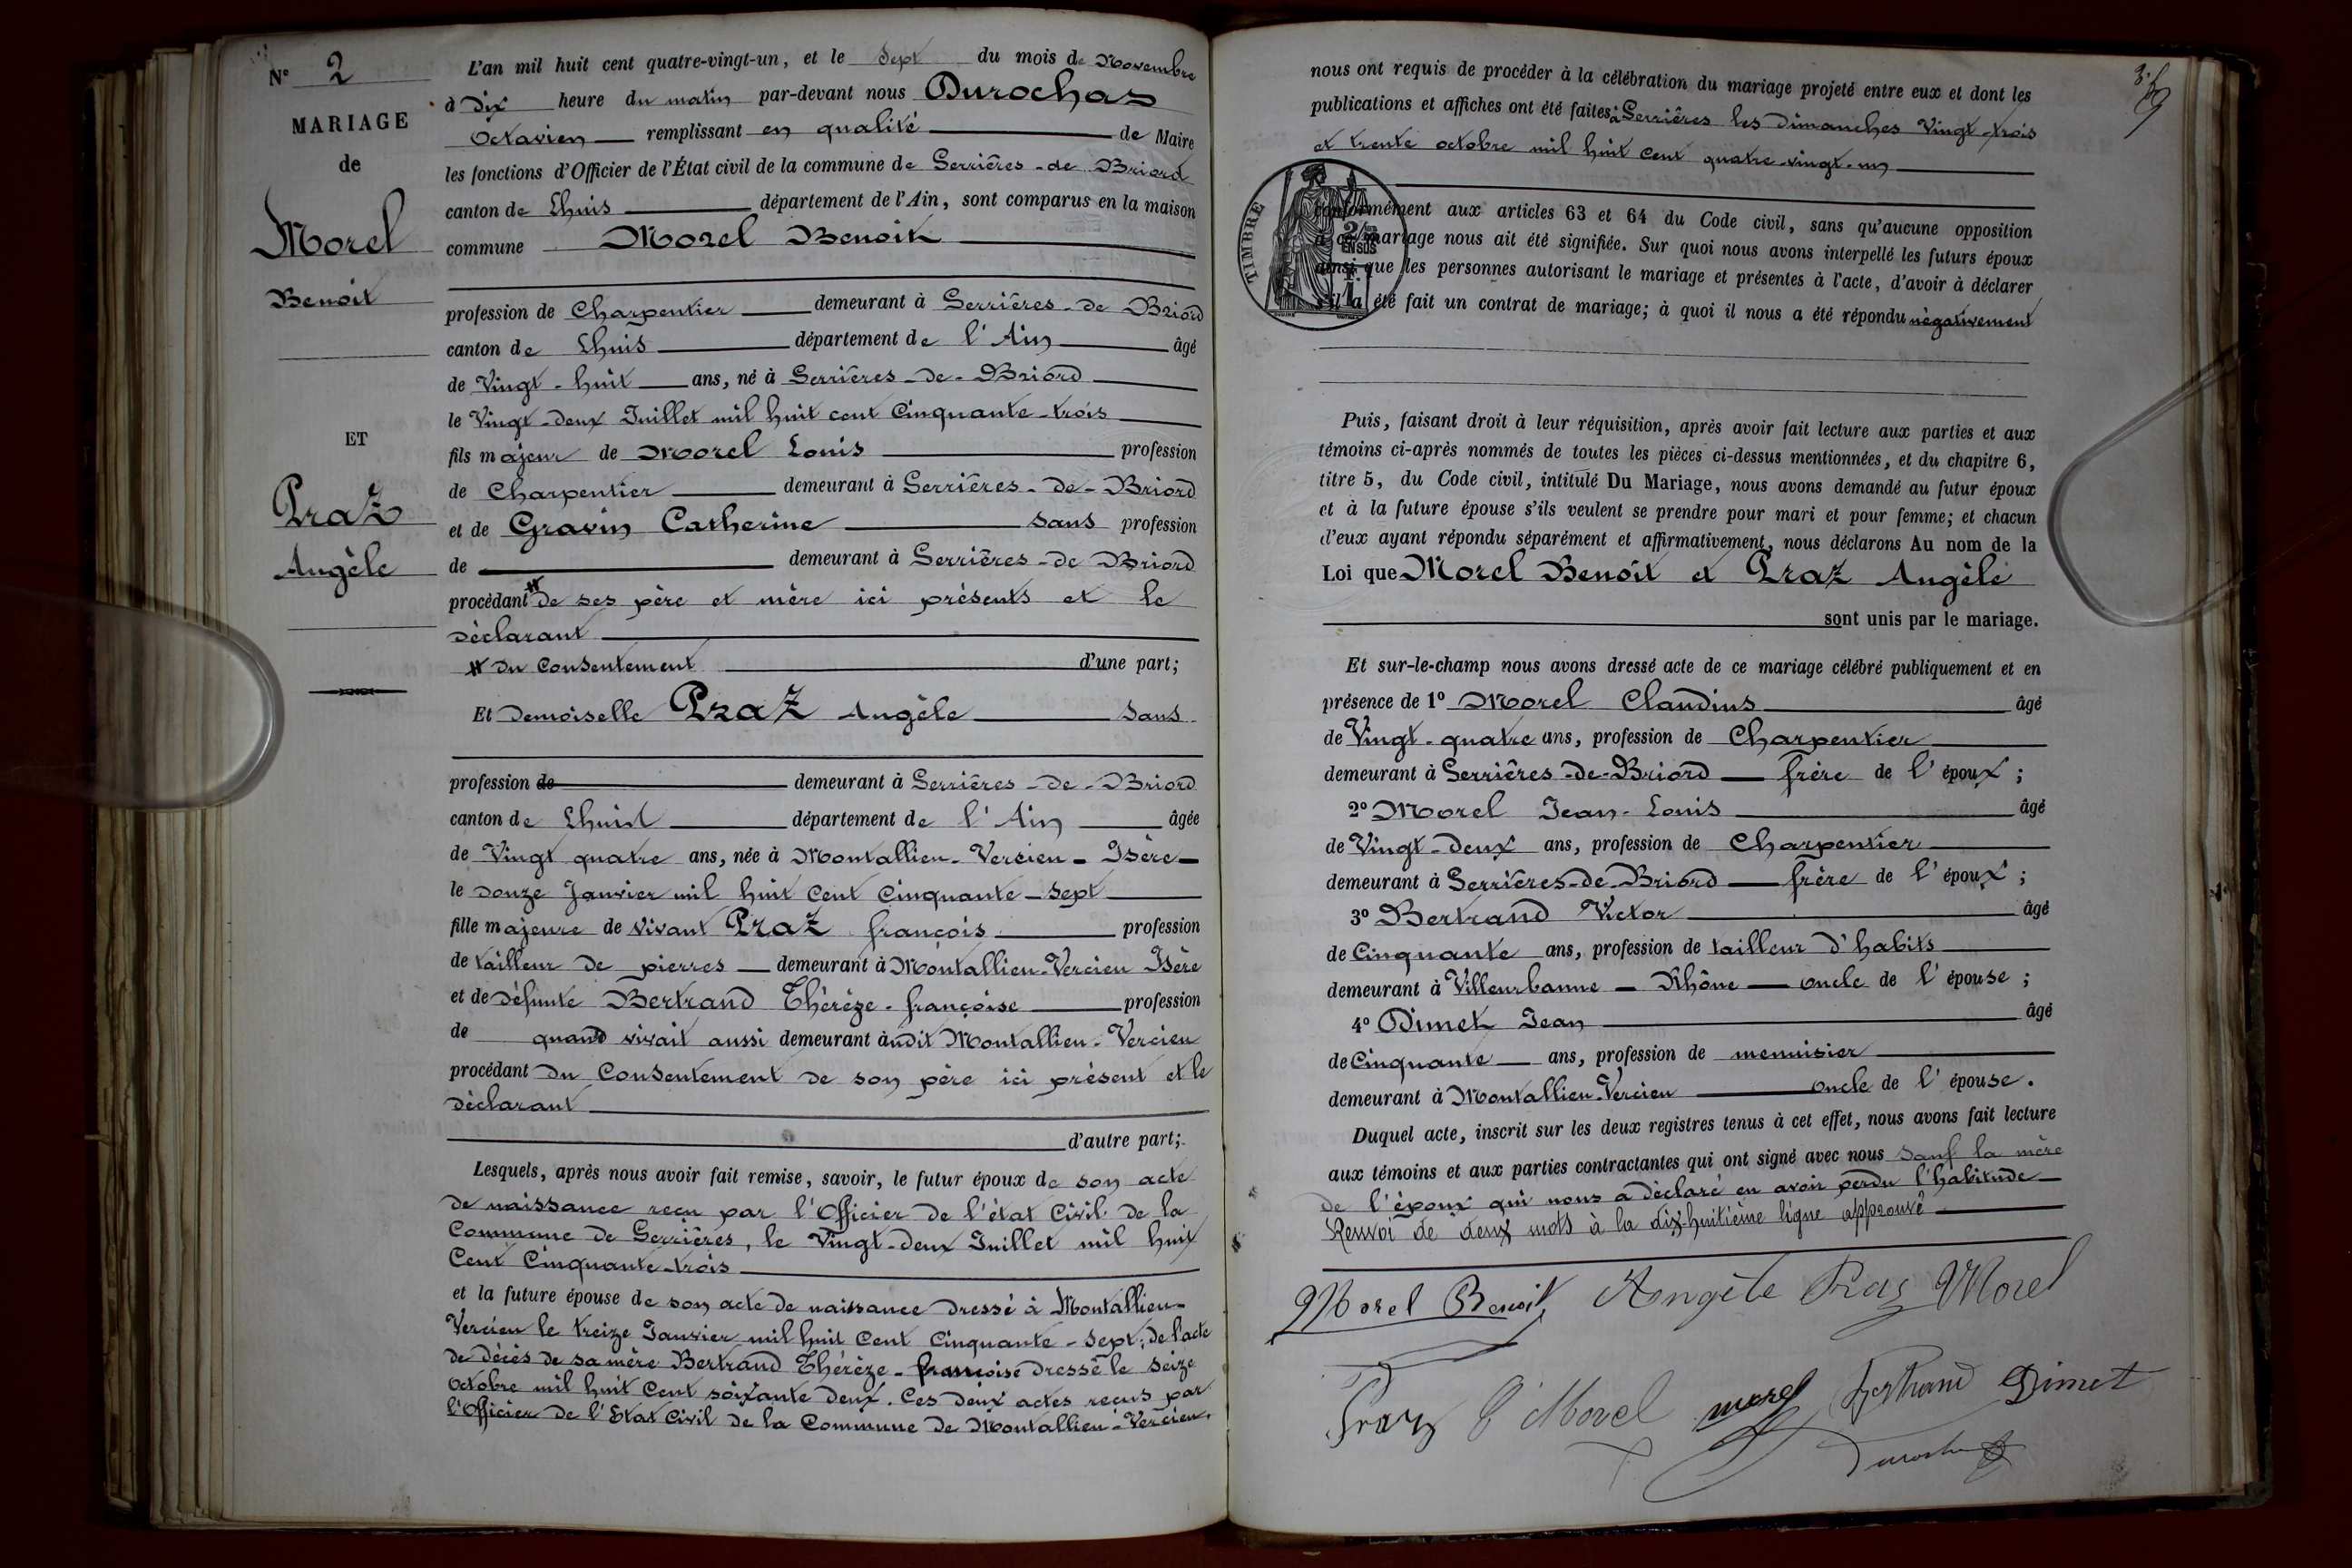 N° 2
MARIAGE
de
Morel
Benoit
ET
Praz
Angèle
L'an mil huit cent quatre-vingt-un, et le sept du mois de Novembre
à Dix heure du matin par-devant nous Durochas
Octavien remplissant en qualité de Maire
les fonctions d'Officier de l'État civil de la commune de Serrières-de Briord
canton de Lhuis département de l'Ain, sont comparus en la maison
commune Morel Benoit
profession de Charpentier demeurant à Serrières-de Briord
canton de Lhuis département de l'Ain âgé
de Vingt-huit ans, né à Serrières-de-Briord
le Vingt-deux Juillet mil huit cent Cinquante-trois
fils majeur de Morel Louis profession
de Charpentier demeurant à Serrières-de-Briord
et de Gravin Catherine sans profession
de demeurant à Serrières-de Briord
procédant # de ses père et mère ici présents et le
déclarant
# du Consentement d'une part;
Et Demoiselle Praz Angèle sans
profession de demeurant à Serrières-de-Briord
canton de Lhuis département de l'Ain âgée
de Vingt quatre ans, née à Montallieu-Vercieu-Isère-
le douze Janvier mil huit Cent Cinquante-sept
fille majeure de vivant Praz françois profession
de tailleur de pierres demeurant à Montallieu-Vercieu Isère
et de défunte Bertrand Thérèze-françoise profession
de quand vivait aussi demeurant àudit Montallieu-Vercieu
procédant du Consentement de son père ici présent et le
déclarant
d'autre part;
Lesquels, après nous avoir fait remise, savoir, le futur époux de son acte
de naissance reçu par l'Officier de l'état Civil de la
Commune de Serrières, le Vingt-deux Juillet mil huit
Cent Cinquante-trois
et la future épouse de son acte de naissance dressé à Montallieu-
Vercieu le treize Janvier mil huit Cent Cinquante-sept; de l'acte
de décès de sa mère Bertrand Thérèze-françoise dressé le seize
Octobre mil huit Cent soixante deux. Ces deux actes reçus par
l'Officier de l'État Civil de la Commune de Montallieu-Vercieu.
nous ont requis de procéder à la célébration du mariage projeté entre eux et dont les
publications et affiches ont été faites à Serrières les Dimanches Vingt-trois
et trente octobre mil huit cent quatre-vingt-un
TIMBRE
conformément aux articles 63 et 64 du Code civil, sans qu'aucune opposition
à ce mariage nous ait été signifiée. Sur quoi nous avons interpellé les futurs époux
ainsi que les personnes autorisant le mariage et présentes à l'acte, d'avoir à déclarer
s'il a été fait un contrat de mariage; à quoi il nous a été répondu négativement
Puis, faisant droit à leur réquisition, après avoir fait lecture aux parties et aux
témoins ci-après nommés de toutes les pièces ci-dessus mentionnées, et du chapitre 6,
titre 5, du Code civil, intitulé Du Mariage, nous avons demandé au futur époux
et à la future épouse s'ils veulent se prendre pour mari et pour femme; et chacun
d'eux ayant répondu séparément et affirmativement, nous déclarons Au nom de la
Loi que Morel Benoit et Praz Angèle
sont unis par le mariage.
Et sur-le-champ nous avons dressé acte de ce mariage célébré publiquement et en
présence de 1° Morel Claudius âgé
de Vingt-quatre ans, profession de Charpentier
demeurant à Serrières-de-Briord frère de l'époux;
2° Morel Jean-Louis âgé
de Vingt-deux ans, profession de Charpentier
demeurant à Serrières-de-Briord frère de l'époux;
3° Bertrand Victor âgé
de Cinquante ans, profession de tailleur d'habits
demeurant à Villeurbanne - Rhône oncle de l'épouse;
4° Dimet Jean âgé
de Cinquante ans, profession de menuisier
demeurant à Montallieu-Vercieu oncle de l'épouse.
Duquel acte, inscrit sur les deux registres tenus à cet effet, nous avons fait lecture
aux témoins et aux parties contractantes qui ont signé avec nous sauf la mère
de l'époux qui nous a déclaré en avoir perdu l'habitude
Renvoi de deux mots à la dix-huitième ligne approuvé
Morel Benoit Angèle Praz Morel
Praz C Morel morel Bertrand Dimet
Durochas